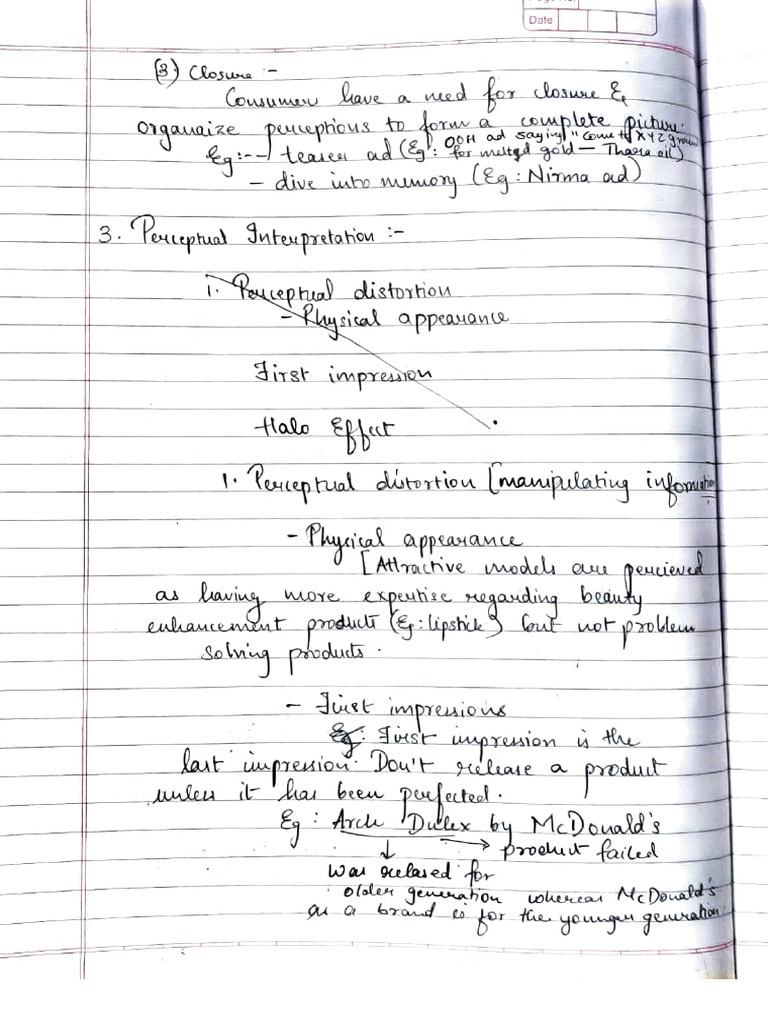 Date
(3) Closure :-
Consumer have a need for closure &
organaize perceptions to form a complete picture.
OOH ad saying "Come to XYZ
Eg:-- teaser ad (Eg: for melted gold -
- dive into memory (Eg: Nirma ad)
3. Perceptual Interpretation :-
1. Perceptual distortion
- Physical appearance
First impression
Halo Effect
1. Perceptual distortion [manipulating information
- Physical appearance
[Attractive models are percieved
as having more expertise regarding beauty
enhancement products (Eg: lipstick) but not problem
solving products.
- First impressions
Eg: First impression is the
last impression. Don't release a product
unless it has been perfected.
Eg: Arch Dulex by McDonald's
→ product failed
was relased for
older generation whereas McDonald's
as a brand is for the younger generation.